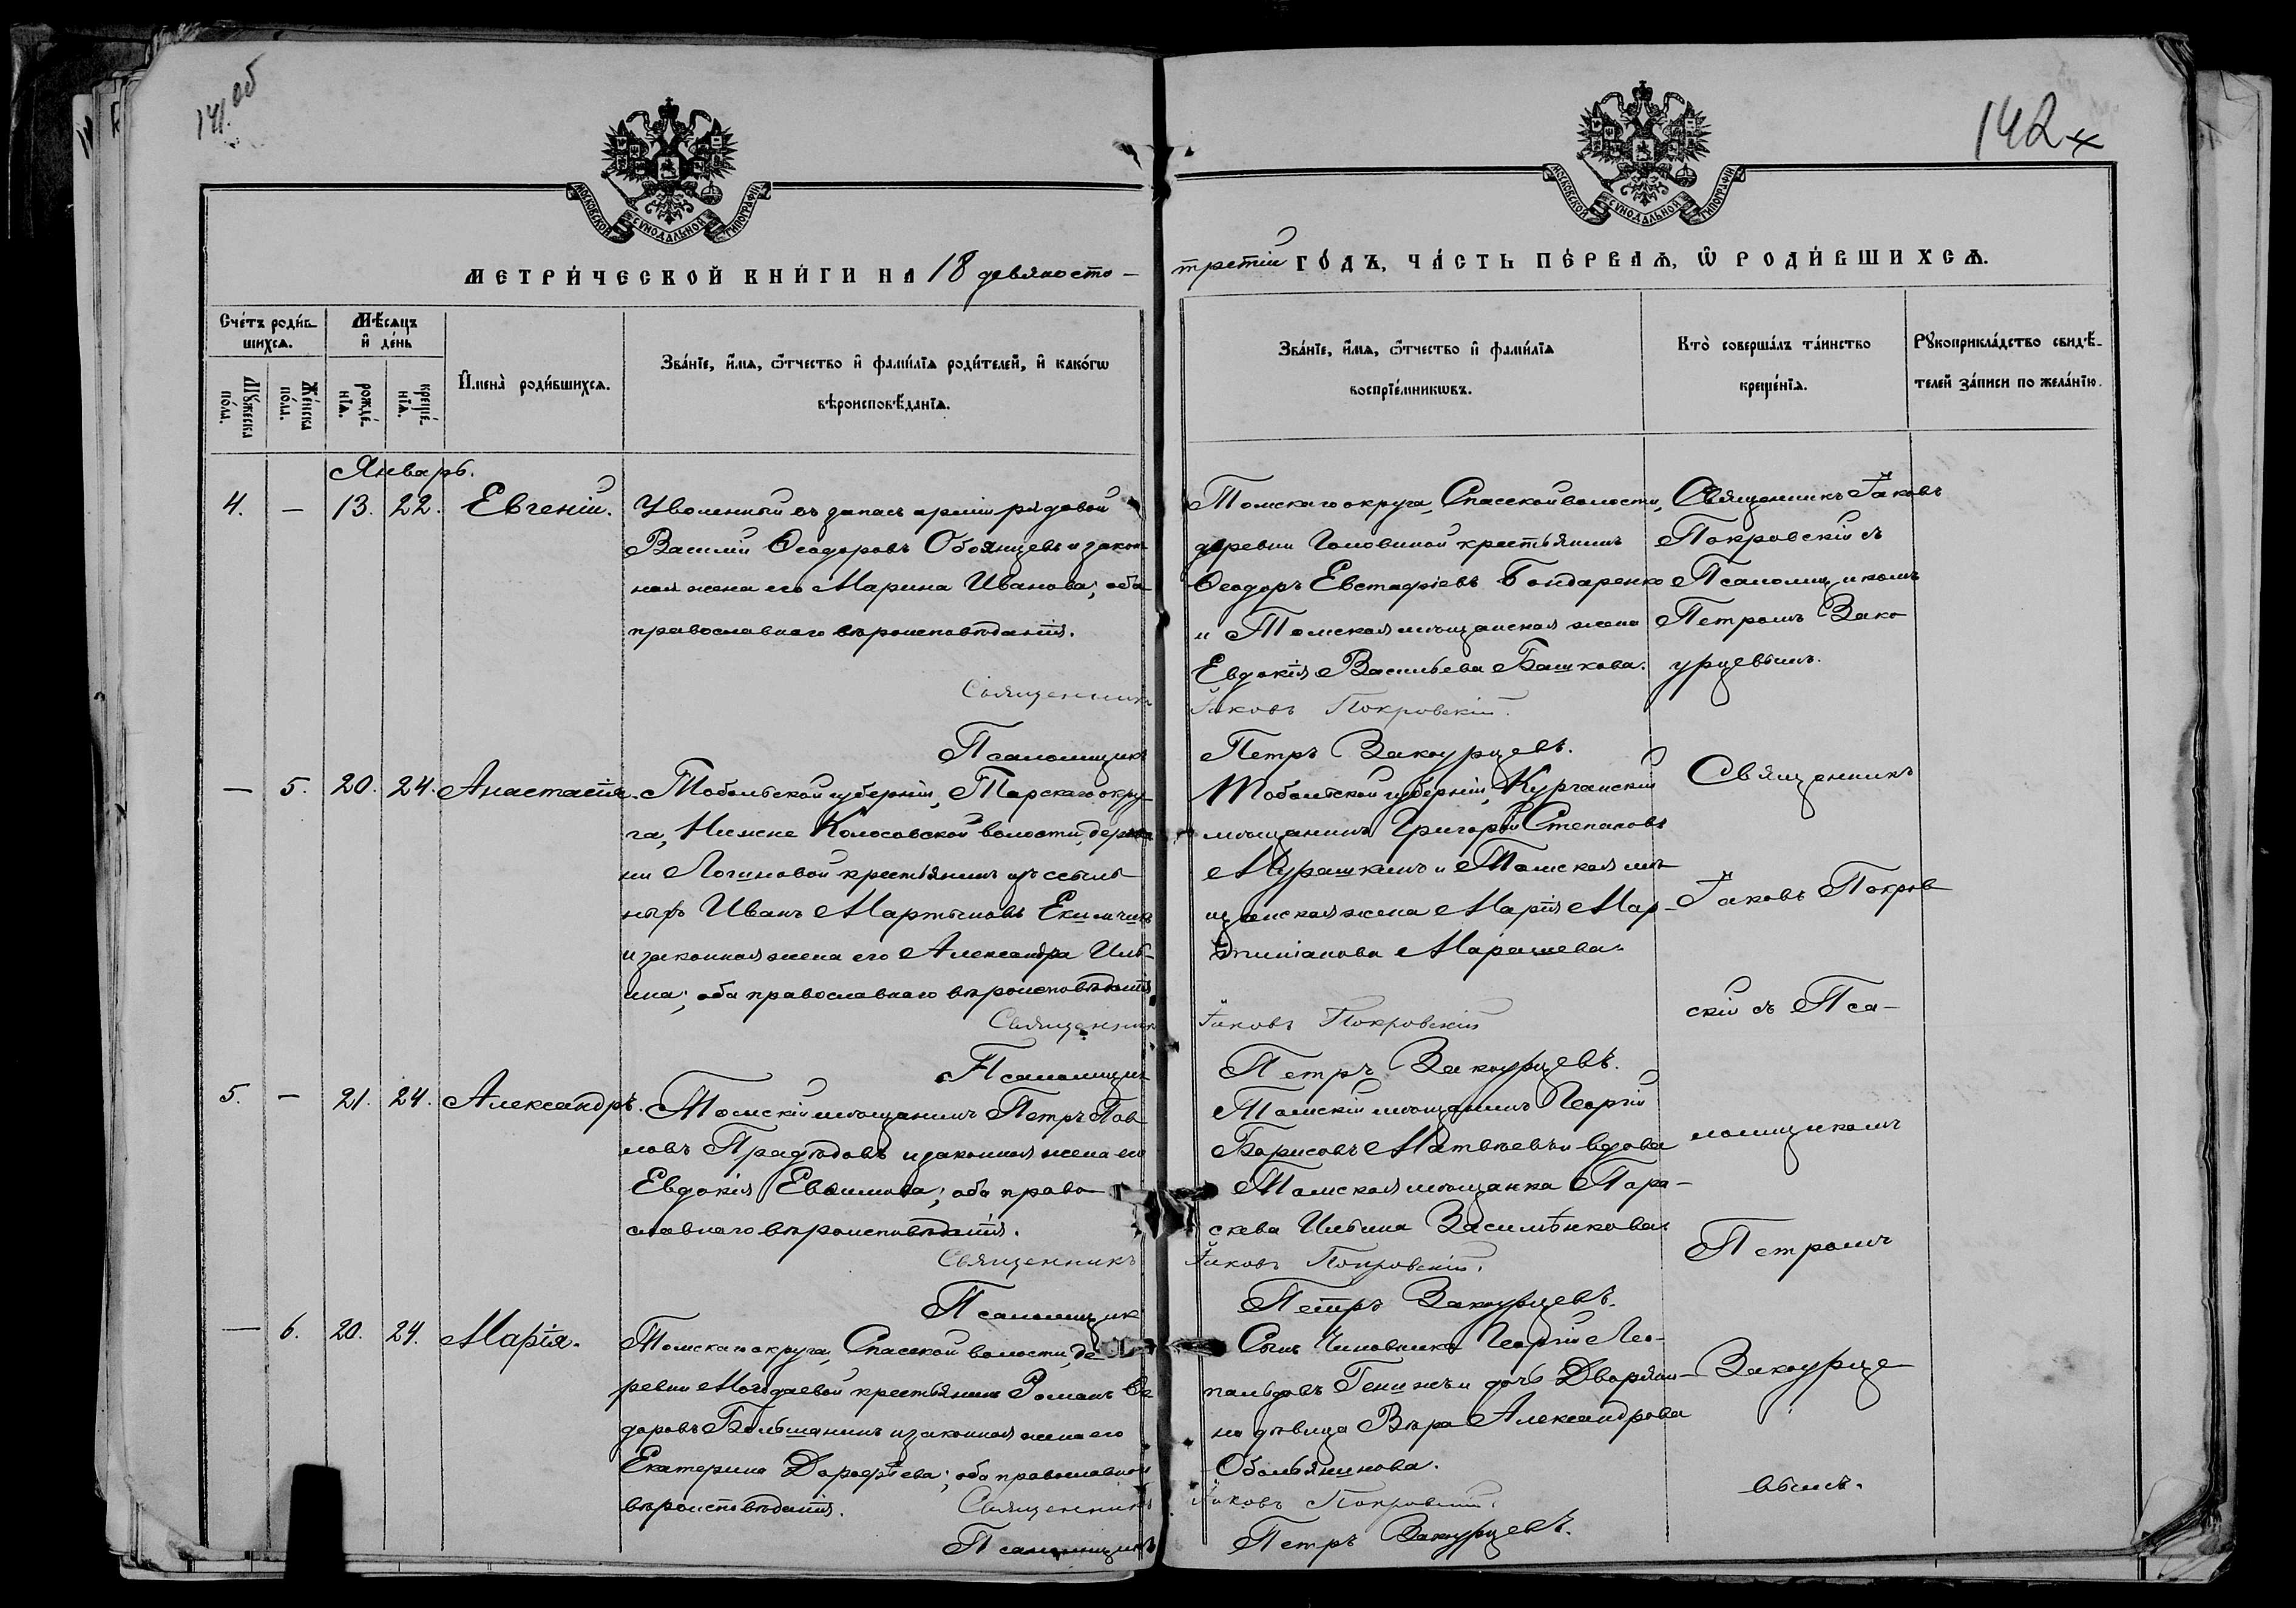 141.об
142
МОСКОВСКОЙ СѴНОДАЛЬНОЙ ТИПОГРАФІИ
МОСКОВСКОЙ СѴНОДАЛЬНОЙ ТИПОГРАФІИ
МЕТРИ́ЧЕСКОЙ КНИ́ГИ НА 18 девяносто-
третій ГО́ДЪ, ЧА́СТЬ ПЕ́РВАѦ, Ѿ РОДИ́ВШИХСѦ.
Сче́тъ роди́в-
шихсѧ.
Мѣ́сѧцъ
и҆ де́нь
Мꙋ́жеска
по́ла.
Же́нска
по́ла.
рожде́-
нїѧ.
креще́-
нїѧ.
И҆мена̀ роди́вшихсѧ.
Зва́нїе, и҆́мѧ, ѻ҆́тчество и҆ фами́лїѧ роди́телей, и҆ како́гѡ
вѣроисповѣ́данїѧ.
Зва́нїе, и҆́мѧ, ѻ҆́тчество и҆ фами́лїѧ
воспрїе́мникѡвъ.
Кто̀ соверша́лъ та́инство
креще́нїѧ.
Рꙋкоприкла́дство свидѣ́-
телей за́писи по жела́нїю.
Январь.
4. — 13. 22. Евгеній.
Уволенный въ запасъ арміи рядовой
Василій Ѳеодоровъ Обоянцевъ и закон
ная жена его Марина Иванова; оба
православнаго вѣроисповѣданія.
Священникъ
Псаломщикъ
Томскаго округа, Спасской волости,
деревни Головиной крестьянинъ
Ѳеодоръ Евстафіевъ Бондаренко
и Томская мѣщанская жена
Евдокія Васильева Башкова.
Іаковъ Покровскій.
Петръ Закоурцевъ.
Священникъ Іаковъ
Покровскій съ
Псаломщикомъ
Петромъ Зако
урцевымъ.
— 5. 20. 24. Анастасія.
Тобольской губерніи, Тарскаго окру
га, Нижне Колосовской волости, дерев
ни Логиновой крестьянинъ изъ ссыль
ныхъ Иванъ Мартыновъ
и законная жена его Александра Иль-
ина; оба православнаго вѣроисповѣданія
Священникъ
Псаломщикъ
Тобольской губерніи, Курганскій
мѣщанинъ Григорій Степановъ
Мурашкинъ и Томская мѣ
щанская жена Марія Мар-
Марашева.
Іаковъ Покровскій
Петръ Закоурцевъ.
5. — 21. 24. Александръ.
Томскій мѣщанинъ Петръ Пав
ловъ Прадѣдовъ и законная жена его
Евдокія Евѳимова; оба право
славнаго вѣроисповѣданія.
Священникъ
Псаломщикъ
Томскій мѣщанинъ Георгій
Борисовъ Матвѣевъ и вдова
Томская мѣщанка Пара-
скева Ильина
Іаковъ Покровскій.
Петръ Закоурцевъ.
— 6. 20. 24. Марія.
Томскаго округа, Спасской волости, де
ревни крестьянинъ Романъ Ѳе
доровъ Большанинъ и законная жена его
Екатерина Дороѳѣева; оба православнаго
вѣроисповѣданія. Священникъ
Псаломщикъ
Сынъ Чиновника Георгій Лео-
польдовъ Генижъ и дочь Дворяни-
на дѣвица Вѣра Александрова
Обольянинова.
Іаковъ Покровскій.
Петръ Закоурцевъ.
Священникъ
Іаковъ Покров
скій съ Пса-
ломщикомъ
Петромъ
Закоурце
вымъ.